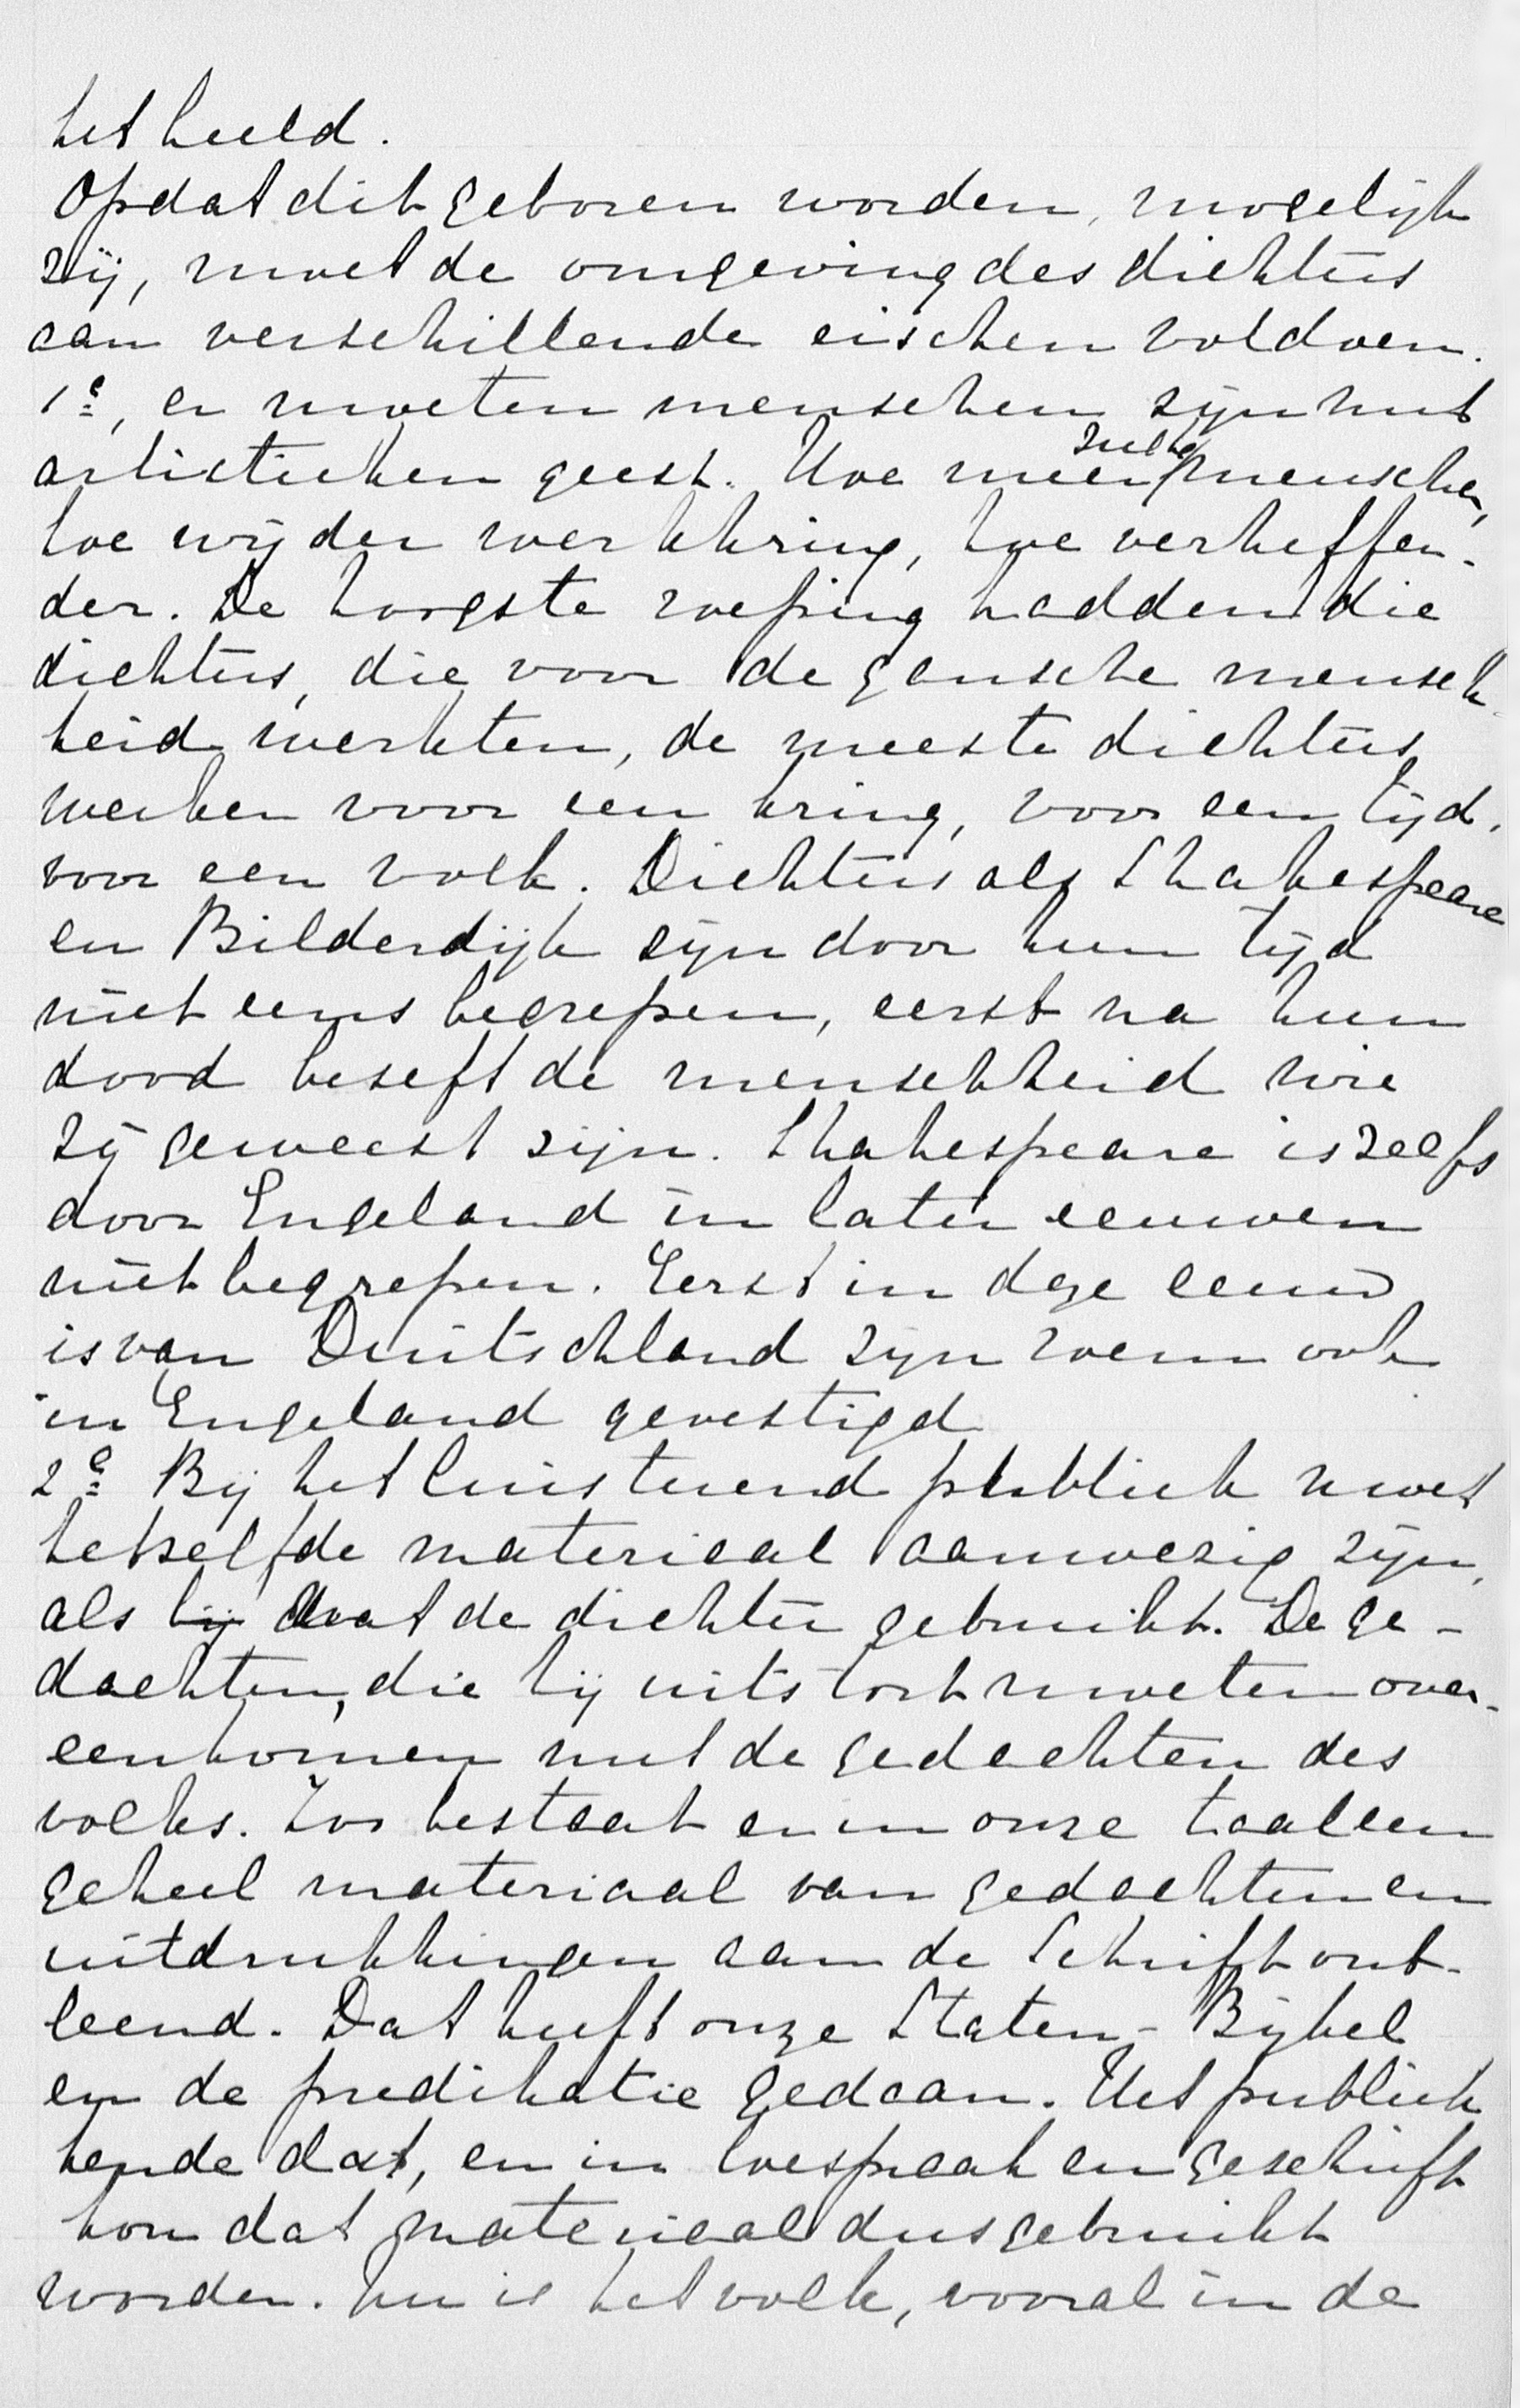 het beeld.
Opdat dit geboren worden, mogelijk
zij, moet de omgeving des dichters
aan verschillende eischen voldoen.
1e, er moeten menschen zijn met
artistieken geest. Hoe meer zulke menschen,
hoe wijder werkkring, hoe verheffen-
der. De hoogste roeping hadden die
dichters, die voor de gansche mensch-
heid werkten, de meeste dichters
werken voor een kring, voor een tijd,
voor een volk. Dichters als Shakespeare
en Bilderdijk zijn door hun tijd
niet eens begrepen, eerst na hun
dood beseft de menschheid wie
zij geweest zijn. Shakespeare is zelfs
door Engeland in later eeuwen
niet begrepen. Eerst in deze eeuw
is van Duitschland zijn roem ook
in Engeland gevestigd
2e Bij het luisterend publiek moet
hetzelfde materiaal aanwezig zijn,
als hij dat de dichter gebruikt. De ge-
dachten, die hij uitstort moeten over-
eenkomen met de gedachten des
volks. Zoo bestaat er in onze taal een
geheel materiaal van gedachten en
uitdrukkingen aan de Schrift ont-
leend. Dat heeft onze Staten-Bijbel
en de predikatie gedaan. Het publiek
kende dat, en in toespraak en geschrift
kon dat materiaal dus gebruikt
worden. Nu is het volk, vooral in de